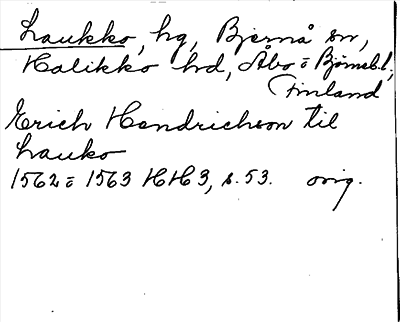 Laukko, hg, Bjernå sn,
Halikko hd, Åbo o Björneb. l,
Finland
Erich Hendrichson til
Lauko
1562 o 1563 HH3, s. 53. orig.